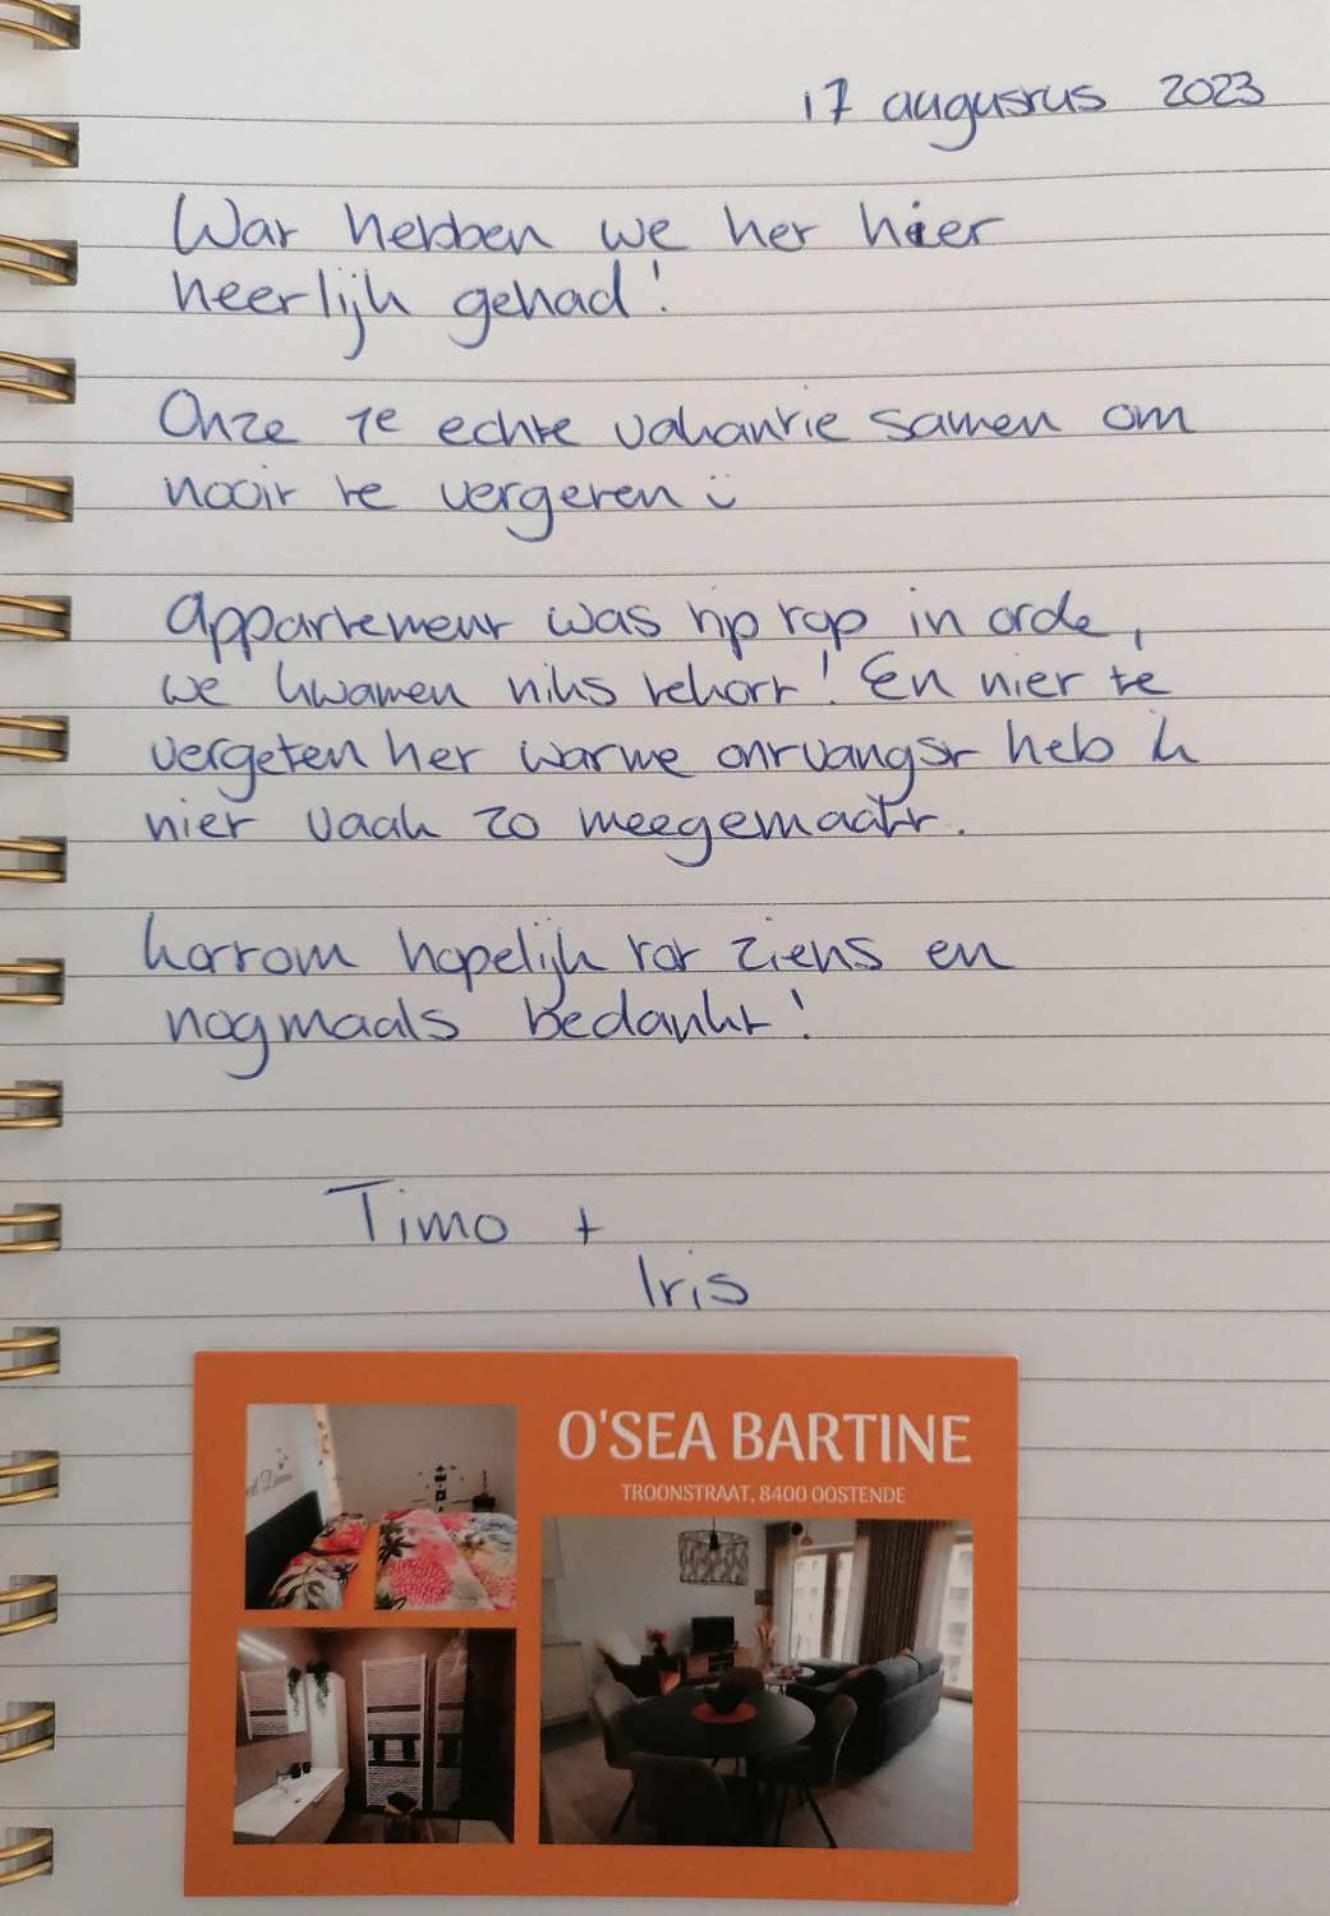 17 augustus 2023
Wat hebben we het hier
heerlijk gehad!
Onze 1e echte vakantie samen om
nooit te vergeten ü
Appartement was tip top in orde,
we kwamen niks tekort! En niet te
vergeten het warme ontvangst heb ik
niet vaak zo meegemaakt.
kortom hopelijk tot ziens en
nogmaals bedankt!
Timo +
Iris
O'SEA BARTINE
TROONSTRAAT, 8400 OOSTENDE